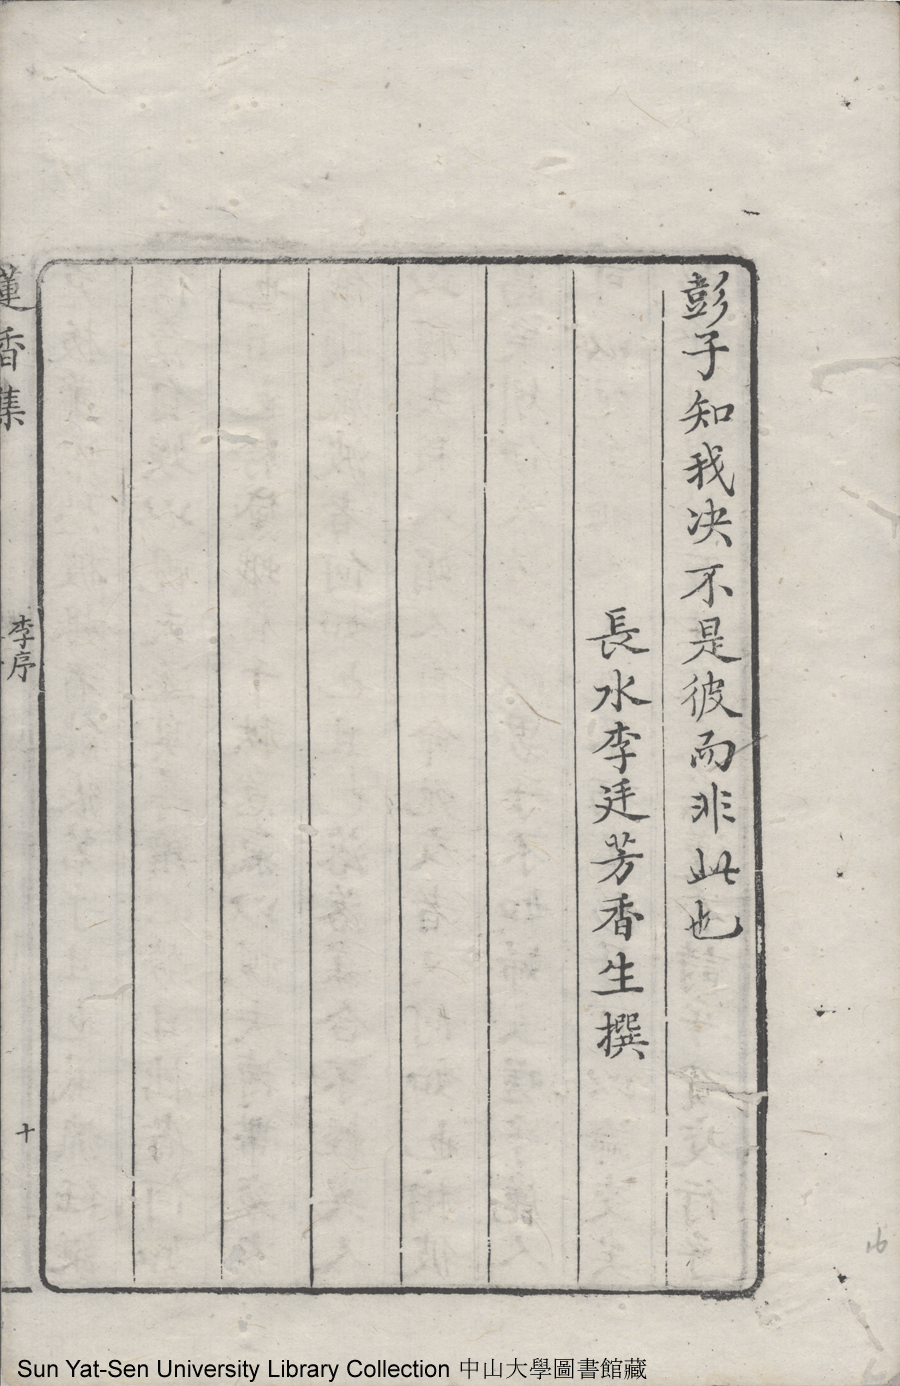 彭子知我决不是彼而非此也
長水李廷芳香生撰
蓮香集
李序
十
Sun Yat-Sen University Library Collection 中山大學圖書館藏